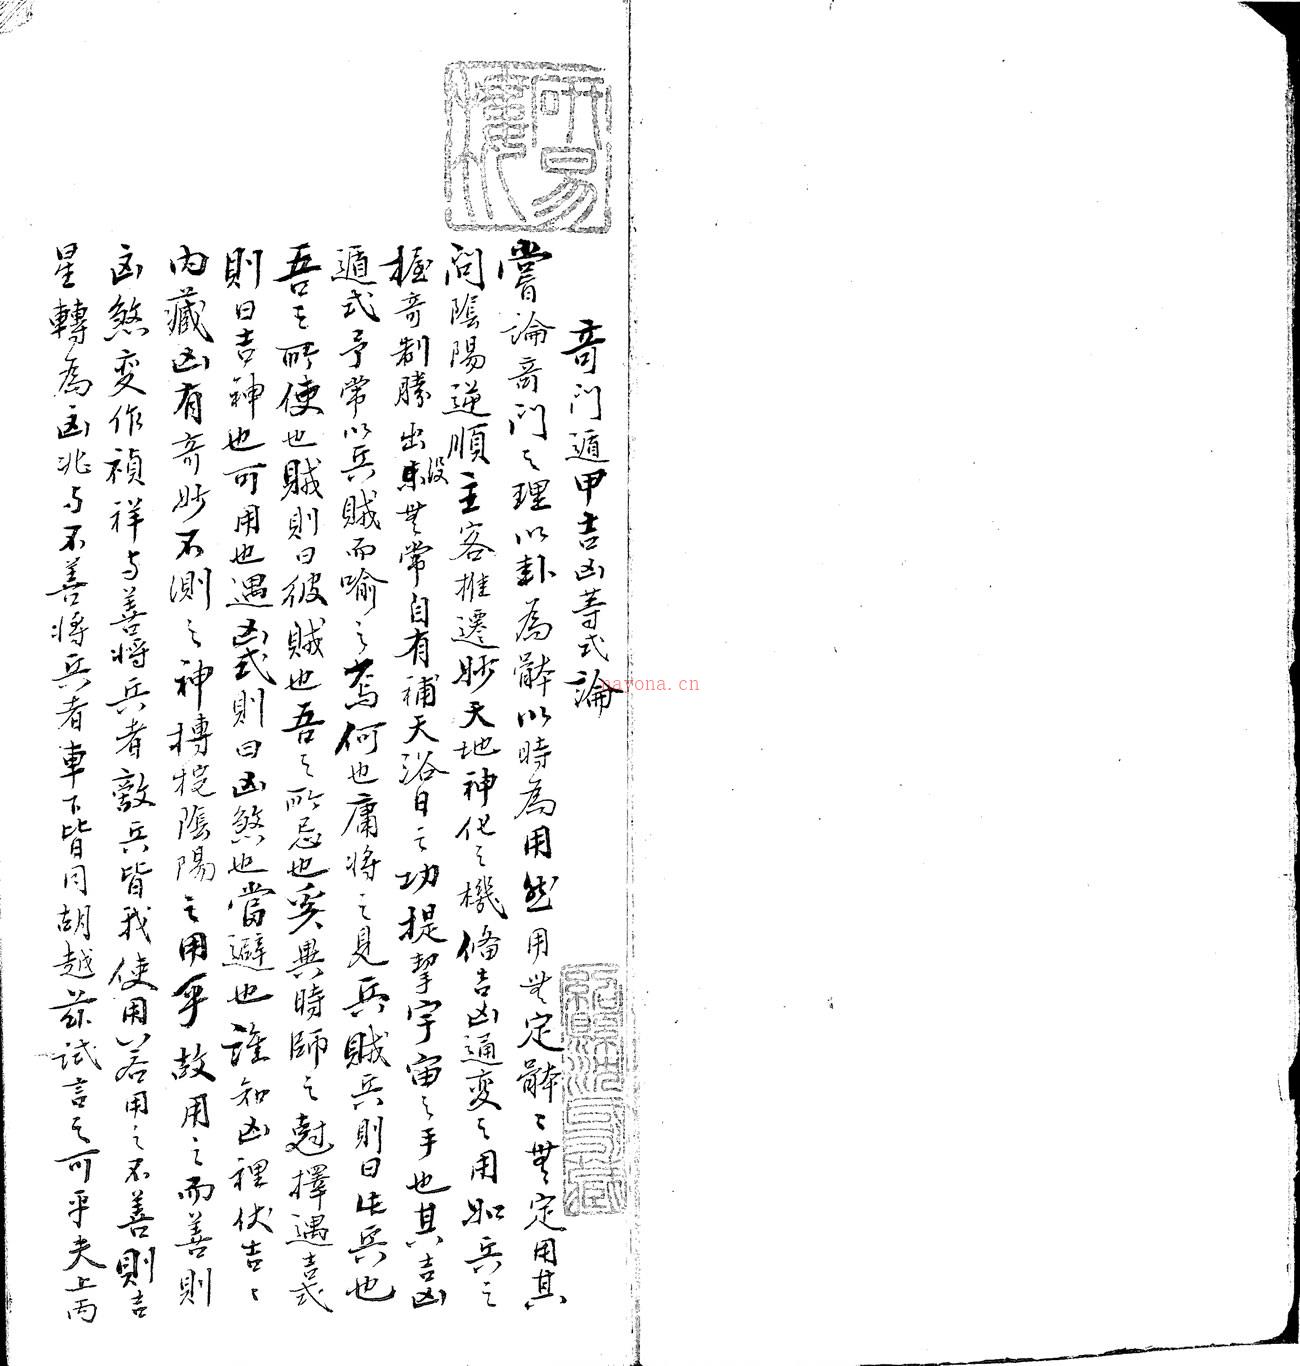 奇門遁甲吉凶等式論
嘗論奇門之理以卦為體以時為用然用無定體〻無定用其
問陰陽逆順主客推遷妙天地神化之機備吉凶通變之用如兵之
握奇制勝出沒無常自有補天浴日之功提挈宇宙之手也其吉凶
遁式予常以兵賊而喻之焉何也庸將之見兵賊兵則曰此兵也
吾之所使也賊則曰彼賊也吾之所忌也奚異時師之尅擇遇吉式
則曰吉神也可用也遇凶式則曰凶煞也當避也誰知凶裡伏吉〻
內藏凶有奇妙不測之神摶捖陰陽之用乎故用之而善則
凶煞变作禎祥与善將兵者敵兵皆我使用若用之不善則吉
星轉為凶兆与不善將兵者車下皆同胡越茲試言之可乎夫上丙
研易樓
nayona.cn